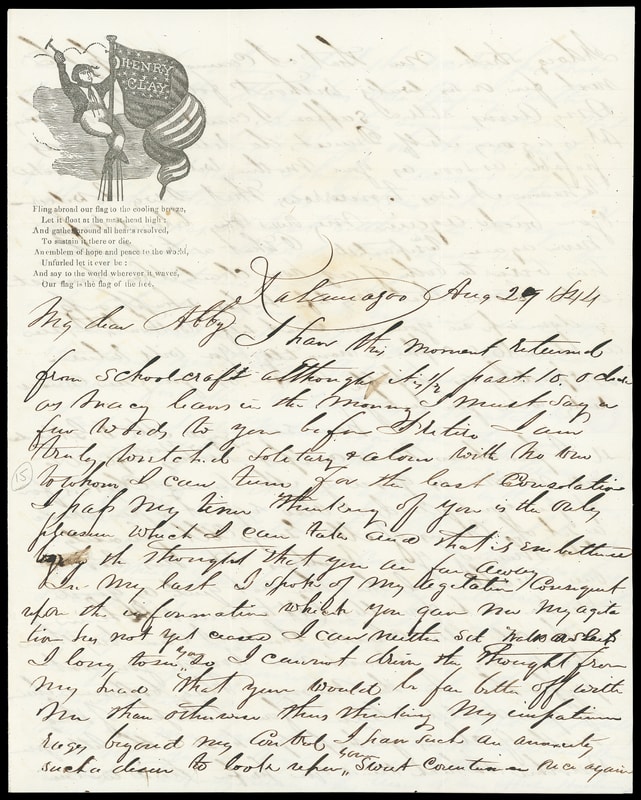 HENRY
CLAY.
Fling abroad our flag to the cooling breeze,
Let it float at the mast-head high;
And gather around all hearts resolved,
To sustain it there or die.
An emblem of hope and peace to the world,
Unfurled let it ever be;
And say to the world wherever it waves,
Our flag is the flag of the free.
Kalamazoo Aug 29 1844
My dear Abby
I have this moment returned
from Schoolcraft although it is 1/2 past 10, o clock
as Macy leaves in the morning I must say a
few words to you before I retire I am
truly wretched solitary & alone with no one
to whom I can turn for the least Consolation
I pass my time thinking of you is the only
pleasure which I can take and that is embittered
by the thought that you are far away
In my last I spoke of my agitation Consequent
upon the information which you gave me my agita
tion has not yet ceased I can neither set walk or sleep
I long to see you so, I cannot drive the thought from
my mind that you would be far better off with
me than otherwise thus thinking my impatience
rages beyond my Control I have such an anxiety
such a desire to look upon your Sweet Countenance once again
15